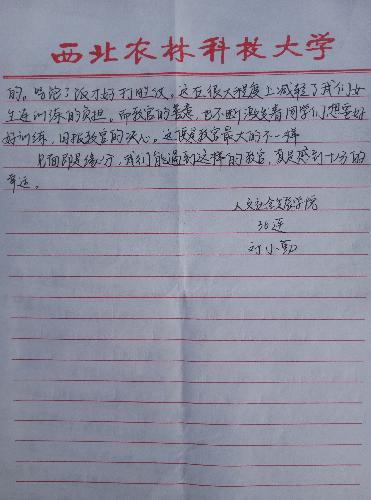 西北农林科技大学
的。吃饱了饭才好打胜仗。这在很大程度上减轻了我们女
生连训练的负担，而教官的善意，也不断激发着同学们想要好
好训练，回报教官的决心。这便是教官最大的不一样
见面即是缘分，我们能遇到这样的教官，真是感到十分的
幸运。
人文社会发展学院
36连
刘小勤